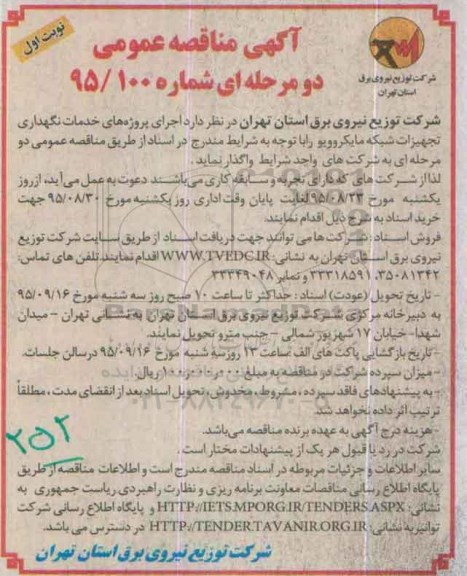 نوبت اول
آگهی مناقصه عمومی
دو مرحله ای شماره ۹۵/۱۰۰
شرکت توزیع نیروی برق
استان تهران
شرکت توزیع نیروی برق استان تهران در نظر دارد اجرای پروژه‌های خدمات نگهداری
تجهیزات شبکه مایکروویو را با توجه به شرایط مندرج در اسناد از طریق مناقصه عمومی دو
مرحله ای به شرکت های واجد شرایط واگذار نماید.
لذا از شرکت های که دارای تجربه و سابقه کاری می‌باشند دعوت به عمل می‌آید، از روز
یکشنبه مورخ ۹۵/۰۸/۲۳ لغایت پایان وقت اداری روز یکشنبه مورخ ۹۵/۰۸/۳۰ جهت
خرید اسناد به شرح ذیل اقدام نمایند.
فروش اسناد: شرکت ها می توانند جهت دریافت اسناد از طریق سایت شرکت توزیع
نیروی برق استان تهران به نشانی: WWW.TVEDC.IR اقدام نمایند. تلفن های تماس:
۳۵۰۸۱۳۴۲، ۳۳۳۱۸۵۹۱ و نمابر ۳۳۳۴۹۰۴۸
- تاریخ تحویل (عودت) اسناد: حداکثر تا ساعت ۱۰ صبح روز سه شنبه مورخ ۹۵/۰۹/۱۶
به دبیرخانه مرکزی شرکت توزیع نیروی برق استان تهران به نشانی تهران - میدان
شهدا- خیابان ۱۷ شهریور شمالی - جنب مترو تحویل نمایند.
- تاریخ بازگشایی پاکت های الف ساعت ۱۳ روز سه شنبه مورخ ۹۵/۰۹/۱۶ در سالن جلسات.
- میزان سپرده شرکت در مناقصه به مبلغ ریال.
- به پیشنهادهای فاقد سپرده، مشروط، مخدوش، تحویل اسناد بعد از انقضای مدت، مطلقاً
ترتیب اثر داده نخواهد شد.
- هزینه درج آگهی به عهده برنده مناقصه می‌باشد.
شرکت در رد یا قبول هر یک از پیشنهادات مختار است.
سایر اطلاعات و جزئیات مربوطه در اسناد مناقصه مندرج است و اطلاعات مناقصه از طریق
پایگاه اطلاع رسانی مناقصات معاونت برنامه ریزی و نظارت راهبردی ریاست جمهوری به
نشانی: HTTP://IETS.MPORG.IR/TENDERS.ASPX و پایگاه اطلاع رسانی شرکت
توانیر به نشانی: HTTP://TENDER.TAVANIR.ORG.IR در دسترس می باشد.
۲۵۲
شرکت توزیع نیروی برق استان تهران